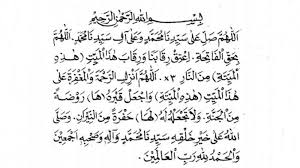 بِسْمِ اللهِ الرَّحْمٰنِ الرَّحِيْمِ
اَللّٰهُمَّ صَلِّ عَلَى سَيِّدِنَا مُحَمَّدٍ وَعَلَى آلِ سَيِّدِنَا مُحَمَّدٍ. اَللّٰهُمَّ
بِحَقِّ الْفَاتِحَةِ. اِعْتِقْ رِقَابَنَا وَرِقَابَ هٰذَا الْمَيِّتِ (هٰذِهِ
الْمَيِّتَةِ) مِنَ النَّارِ ×٣ اَللّٰهُمَّ اَنْزِلِ الرَّحْمَةَ وَالْمَغْفِرَةَ عَلَى
هٰذَا الْمَيِّتِ (هٰذِهِ الْمَيِّتَةِ) وَاجْعَلْ قَبْرَهُ (هَا) رَوْضَةً
مِنَ الْجَنَّةِ. وَلَا تَجْعَلْهُ لَهُ (هَا) حُفْرَةً مِنَ النِّيْرَانِ. وَصَلَّى
اللهُ عَلَى خَيْرِ خَلْقِهِ سَيِّدِنَا مُحَمَّدٍ وَآلِهِ وَصَحْبِهِ اَجْمَعِيْنَ
وَالْحَمْدُ لِلّٰهِ رَبِّ الْعَالَمِيْنَ.